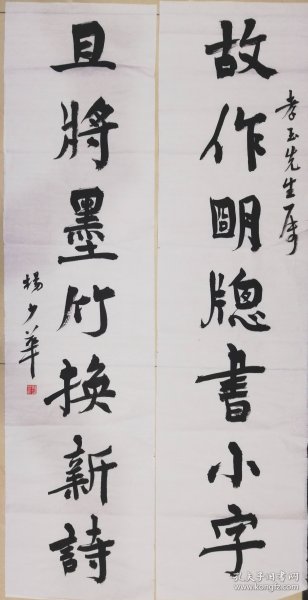 孝玉先生属
故作明窗書小字
且將墨竹換新詩
楊少華
孔夫子旧书网